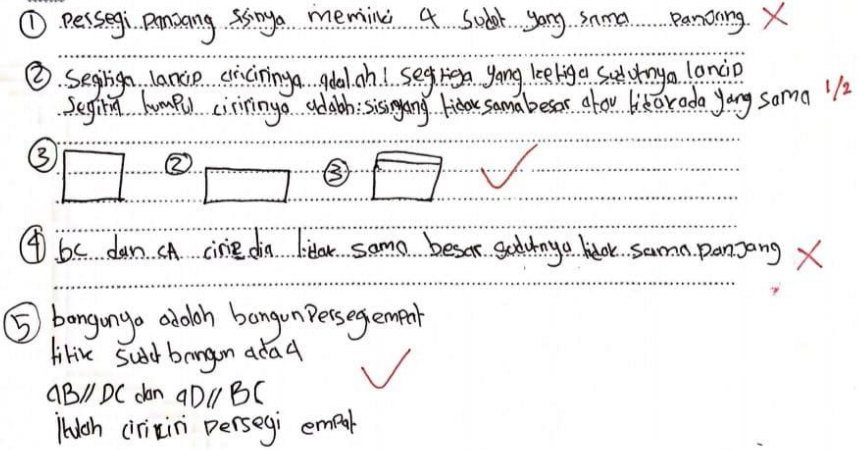 ① Persegi panjang sisinya memiliki 4 sudot yang sama panjang. X
② Segitiga lancip ciricirinya adalah! segitiga yang ketiga sudutnya lancip
Segitia tumpul ciririnya adalah: sisinyang tidak sama besar atau tidak ada yang sama 1/2
③ ② ③ ✓
④ bc dan CA cirie dia tidak sama besar sudutnya tidak sama panjang X
⑤ bangunya adalah bangun Persegi empat
titik sudut bangun ada 4 ✓
AB//DC dan AD//BC
Itulah ciriciri persegi empat